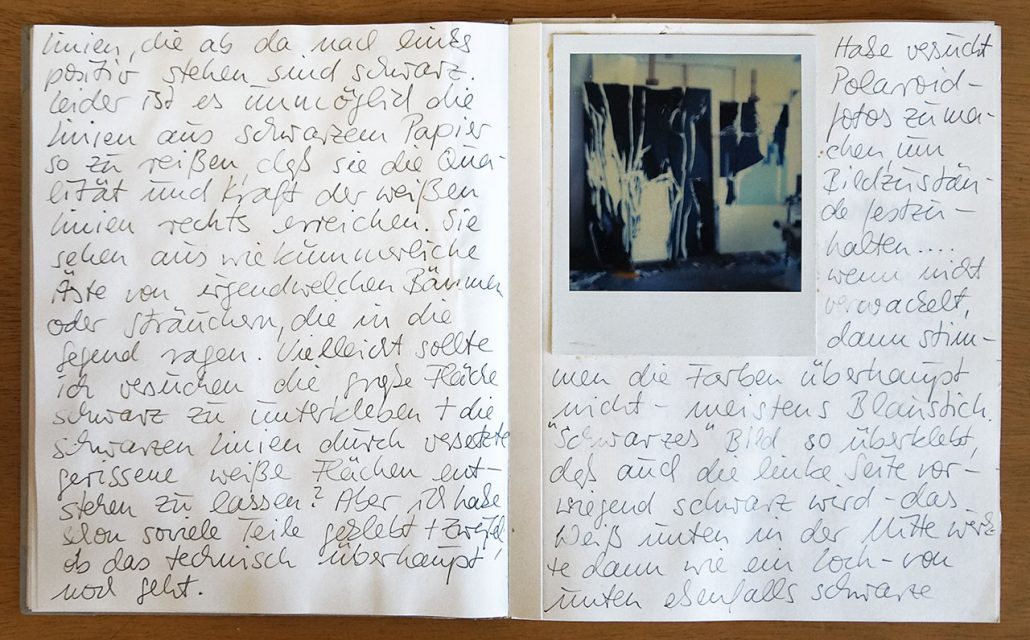 linien, die ab da nach links
positiv stehen sind schwarz.
Leider ist es unmöglich die
linien aus schwarzem Papier
so zu reißen, daß sie die Qua-
lität und Kraft der weißen
linien rechts erreichen. Sie
sehen aus wie kümmerliche
Äste von irgendwelchen Bäumen
oder Sträuchern, die in die
Gegend ragen. Vielleicht sollte
ich versuchen die große Fläche
schwarz zu unterkleben + die
schwarzen linien durch versetzte
gerissene weiße Flächen ent-
stehen zu lassen? Aber ich habe
schon soviele Teile geklebt + zweifel,
ob das technisch überhaupt
noch geht.
Habe versucht
Polaroid-
fotos zu ma-
chen, um
Bildzustän-
de festzu-
halten....
wenn nicht
verwackelt,
dann stim-
men die Farben überhaupt
nicht - meistens Blaustich.
"Schwarzes" Bild so überklebt,
daß auch die linke Seite vor-
wiegend schwarz wird - das
Weiß unten in der Mitte wirk-
te dann wie ein Loch - von
unten ebenfalls schwarze